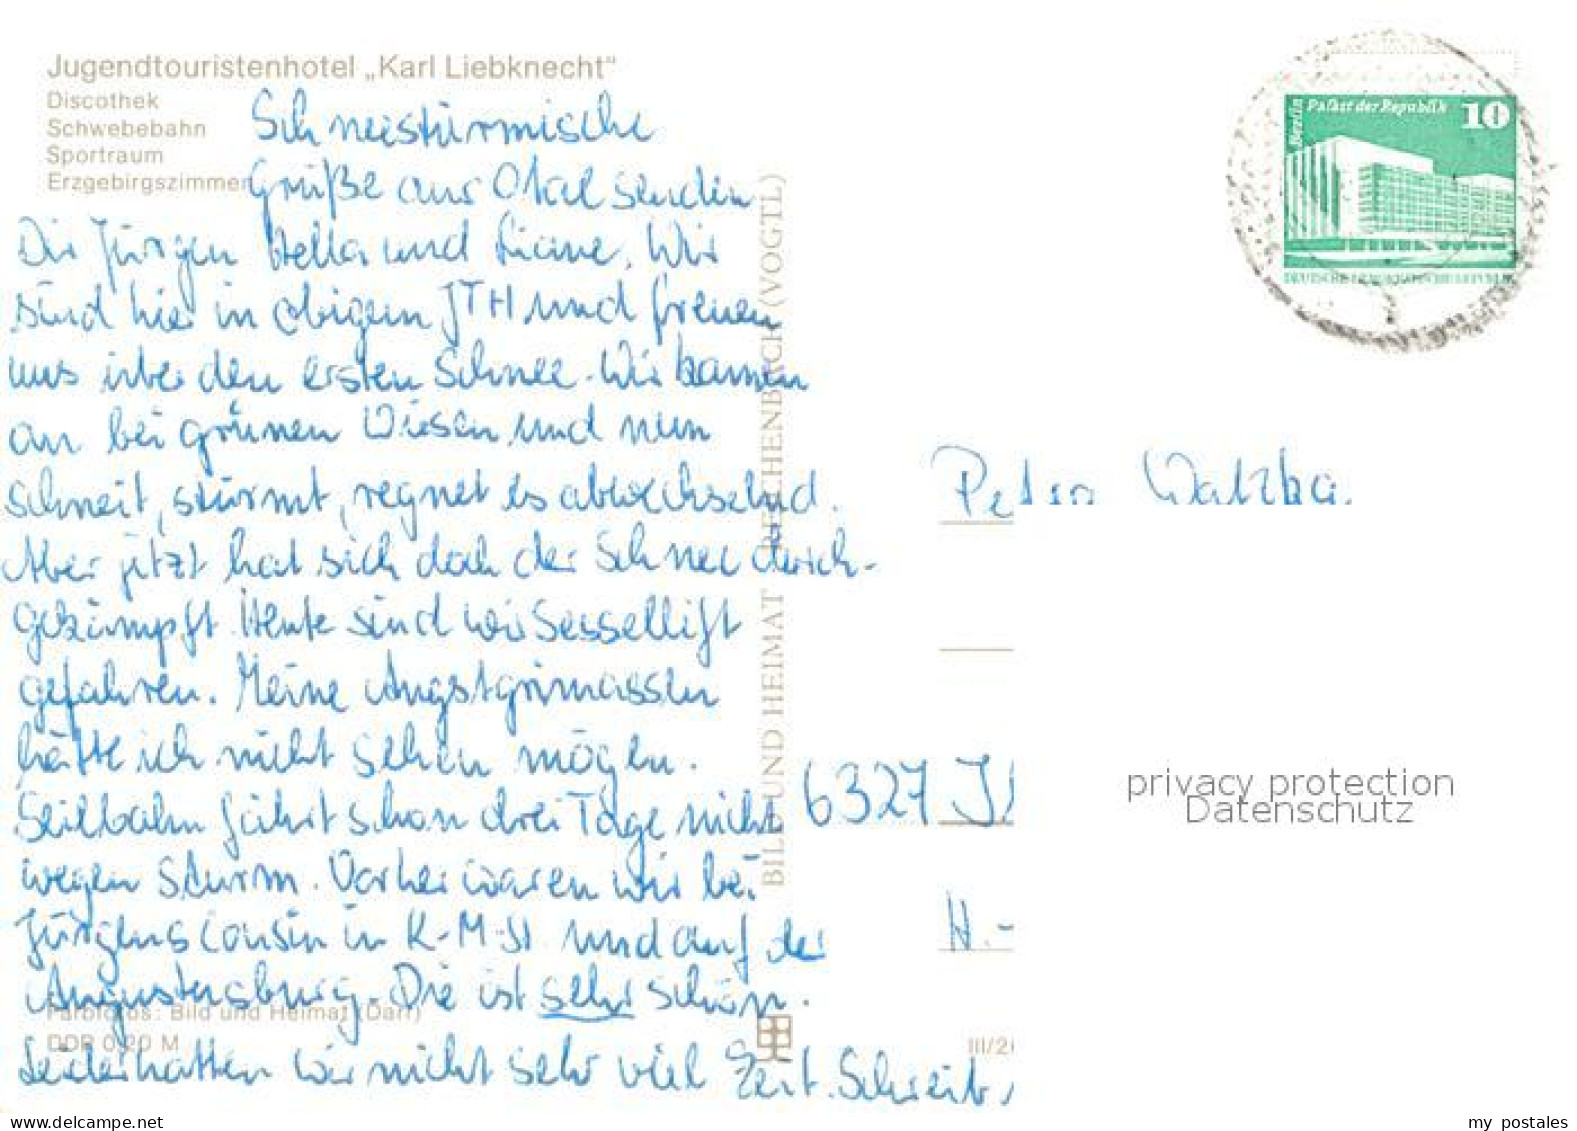 Jugendtouristenhotel „Karl Liebknecht"
Discothek
Schwebebahn
Sportraum
Erzgebirgszimmer
Schneestürmische
Grüße aus Otal senden
Dir Jürgen Hella und Liane. Wir
sind hier in obigem JTH und freuen
uns über den ersten Schnee. Wir kamen
an bei grünen Wiesen und nun
schneit, stürmt, regnet es abwechselnd.
Aber jetzt hat sich doch der Schnee durch-
gekämpft. Heute sind wir Sessellift
gefahren. Meine Angstgrimassen
hätte ich nicht sehen mögen.
Seilbahn fährt schon drei Tage nicht
wegen Sturm. Vorher waren wir bei
Jürgens Cousin in K-M-St. und auf der
Augustusburg. Die ist sehr schön.
Leider hatten wir nicht sehr viel Zeit. Schreib
Farbfotos: Bild und Heimat (Darr)
DDR 0,20 M
BILD UND HEIMAT REICHENBACH (VOGTL)
III/2
Berlin Palast der Republik 10
DEUTSCHE DEMOKRATISCHE REPUBLIK
Peter Watzka.
6327
H.-
privacy protection
Datenschutz
my postales